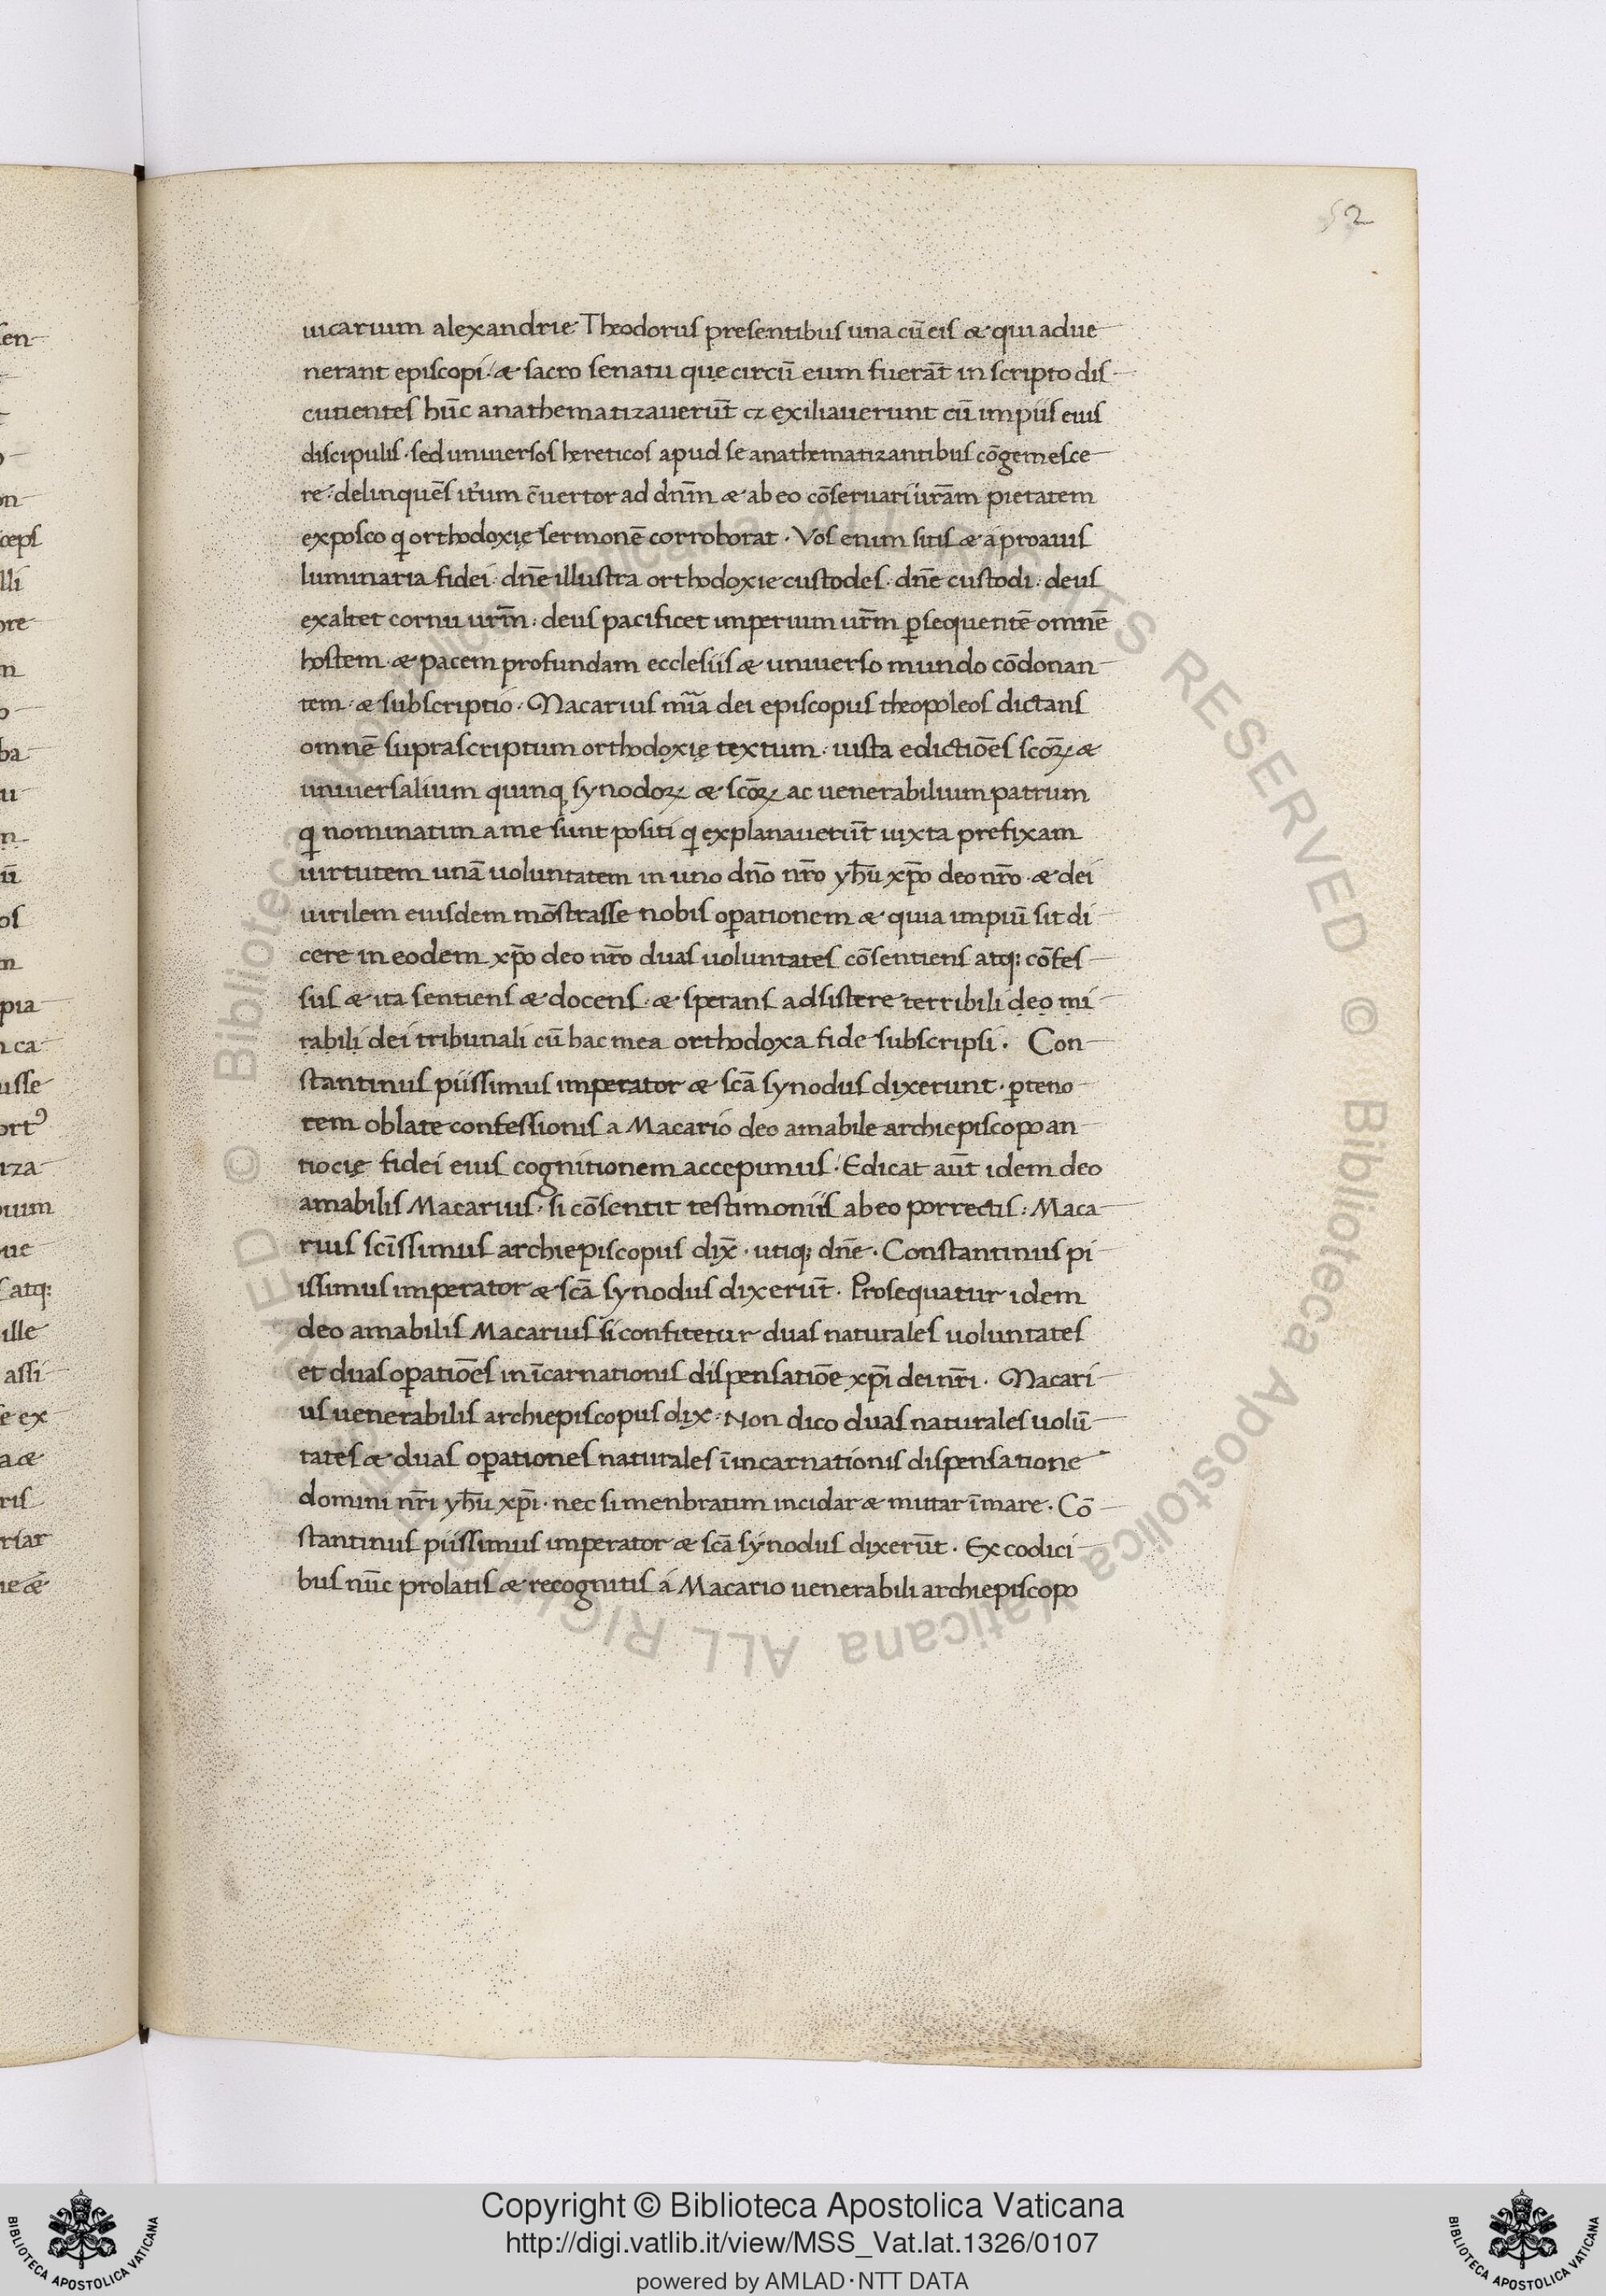 52
uicarium alexandrie Theodorus presentibus una cū eis & qui adue
nerant episcopi · & sacro senatu que circū eum fuerāt in scripto dis
cutientes hūc anathematizauerūt et exiliauerunt cū impiis eius
discipulis · sed uniuersos hereticos apud se anathematizantibus cōgemesce
re · delinquēs it̄um c̄uertor ad dn̄m & ab eo cōseruari ur̄am pietatem
exposco q orthodoxię sermonē corroborat · Vos enim sitis & a proauis
luminaria fidei · dn̄e illustra orthodoxie custodes · dn̄e custodi · deus
exaltet cornu ur̄m · deus pacificet imperium ur̄m p̄sequentē omnē
hostem · & pacem profundam ecclesiis & uniuerso mundo cōdonan
tem · & subscriptio · Macarius mīa dei episcopus theopoleos dictans
omnē suprascriptum orthodoxię textum · iusta edictiōes scōꝝ &
uniuersalium quinq; synodoꝝ & scōꝝ ac uenerabilium patrum
q nominatim a me sunt positi q explanauerūt iuxta prefixam
uirtutem unā uoluntatem in uno dn̄o nr̄o yhū xp̄o deo nr̄o · & dei
uirilem eiusdem mōstrasse nobis op̄ationem & quia impiū sit di
cere in eodem xp̄o deo nr̄o duas uoluntates cōsentiens atq: cōfes
sus & ita sentiens & docens · & sperans adsistere terribili deo mi
rabili dei tribunali cū hac mea orthodoxa fide subscripsi · Con
stantinus piissimus imperator & scā synodus dixerunt · p̄ teno
rem oblate confessionis a Macario deo amabile archiepiscopo an
tiocię fidei eius cognitionem accepimus · Edicat aūt idem deo
amabilis Macarius · si cōsentit testimoniis ab eo porrectis : Maca
rius scīssimus archiepiscopus dix̄ · utiq; dn̄e · Constantinus pi
issimus imperator & scā synodus dixerūt · Prosequatur idem
deo amabilis Macarius si confitetur duas naturales uoluntates
et duas op̄atiōes in īcarnationis dispensatiōe xp̄i dei nr̄i · Macari
us uenerabilis archiepiscopus dix · Non dico duas naturales uolū
tates & duas op̄ationes naturales ī incarnationis dispensatione
domini nr̄i yhū xp̄i · nec si menbratim incidar & mittar ī mare · Cō
stantinus piissimus imperator & scā synodus dixerūt · Ex codici
bus nūc prolatis & recognitis a Macario uenerabili archiepiscopo
Copyright © Biblioteca Apostolica Vaticana
http://digi.vatlib.it/view/MSS_Vat.lat.1326/0107
powered by AMLAD·NTT DATA